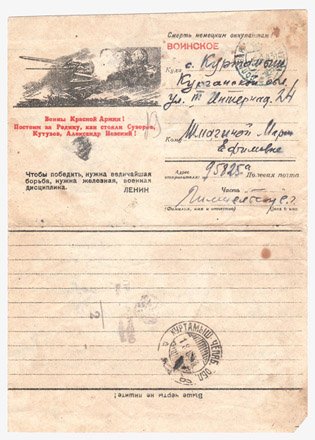 Смерть немецким оккупантам!
ВОИНСКОЕ
Куда с. Куртамыш
Курганской обл.
ул. III Интернац. 24
Воины Красной Армии!
Постоим за Родину, как стояли Суворов,
Кутузов, Александр Невский!
Кому
Марии
Ефимовне
Чтобы победить, нужна величайшая
борьба, нужна железная, военная
дисциплина. ЛЕНИН
Адрес
отправителя: 95825 Полевая почта
Часть
(Фамилия, имя и отчество)
КУРТАМЫШ ЧЕЛЯБ. ОБЛ.
Выше черты не пишите!